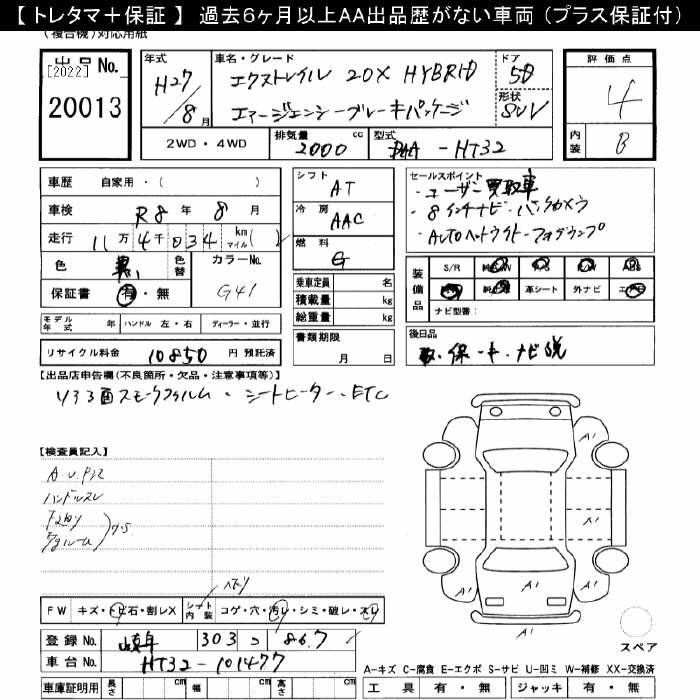 【 トレタマ＋保証 】 過去6ヶ月以上AA出品歴がない車両（プラス保証付）
(複合機)対応用紙
出品No.
[2022]
20013
年式
H27/8月
車名・グレード
エクストレイル 20X HYBRID
エマージェンシーブレーキパッケージ
ドア
5D
形状
SUV
評価点
4
内装
B
2WD・4WD
排気量
2000 cc
型式
DAA-HT32
車歴 自家用・( )
車検 R8年 8月
走行 11万4千034 km マイル( )
色 黒 色替
カラーNo.
G41
保証書 有・無
モデル年式 年 ハンドル 左・右 ディーラー・並行
リサイクル料金 10850 円 預託済
シフト
AT
冷房
AAC
燃料
G
乗車定員 名
積載量 kg
総重量 kg
書類期限
月 日
セールスポイント
・ユーザー買取車
・8インチナビ・バックカメラ
・AUTOヘッドライト・フォグランプ
装備品
S/R A/W P/S P/W ABS
革シート 外ナビ エアB
ナビ型番:
後日品
取・保・キ・ナビ説
【出品店申告欄(不良箇所・欠品・注意事項等)】
リヤ3面スモークフィルム・シートヒーター・ETC
【検査員記入】
A・U・P込
ハンドルスレ
下廻り
エンジンルーム
サビ
ヘタリ
FW キズ・トビ石・割レX シート内装 コゲ・穴・汚レ・シミ・破レ・スレ
登録No. 岐阜 303 つ 867
車台No. HT32-101477
車庫証明用 長さ cm 幅 cm 高さ cm
A1
A1
A1
A1
A1
A1
スペア
A-キズ C-腐食 E-エクボ S-サビ U-凹ミ W-補修 XX-交換済
工具 有・無 ジャッキ 有・無